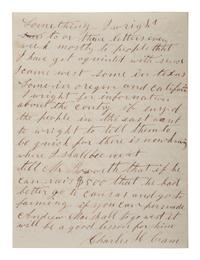 Something I wright
two or three letters every
week mostly to people that
I have got aquinted with since
I came west some in texas
Some in oregon and califonia
I wright for information
about the contry if any of
the people in the east want
to wright to tell them to
be quick for there is now knowing
where I shall be next
tell Mr that if he
can rais $500 that he had
better go to cansas and go to
farming if you can persuade
Andrew Marshall to go west it
will be a good lesson for him
Charles H